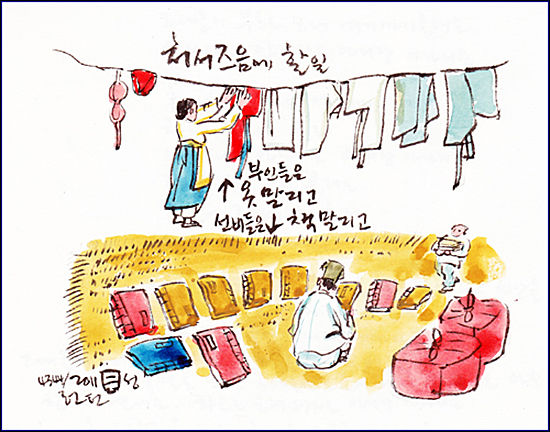 처서즈음에 할일
부인들은
↑ 옷 말리고
선비들은↓ 책말리고
한단